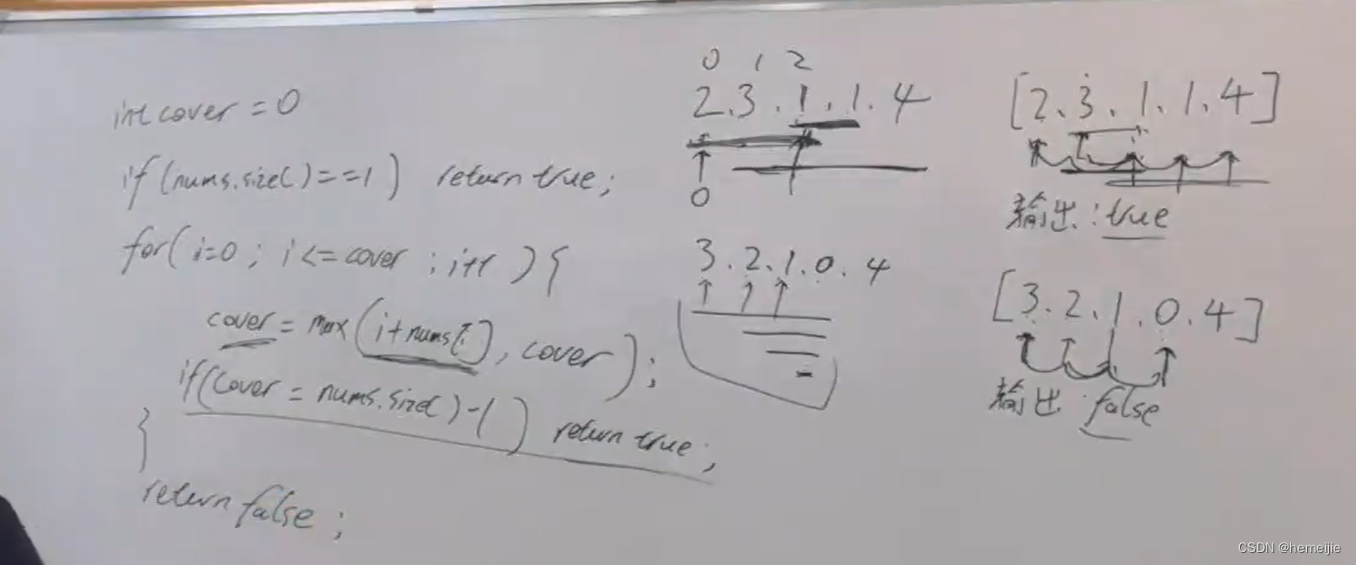 int cover = 0
if(nums.size()==1) return true;
for(i=0; i<=cover; i++){
cover = max(i+nums[i], cover);
if(cover = nums.size()-1) return true;
}
return false;
0 1 2
2.3.1.1.4
0
3.2.1.0.4
[2.3.1.1.4]
输出:true
[3.2.1.0.4]
输出 false
CSDN @hemeijie